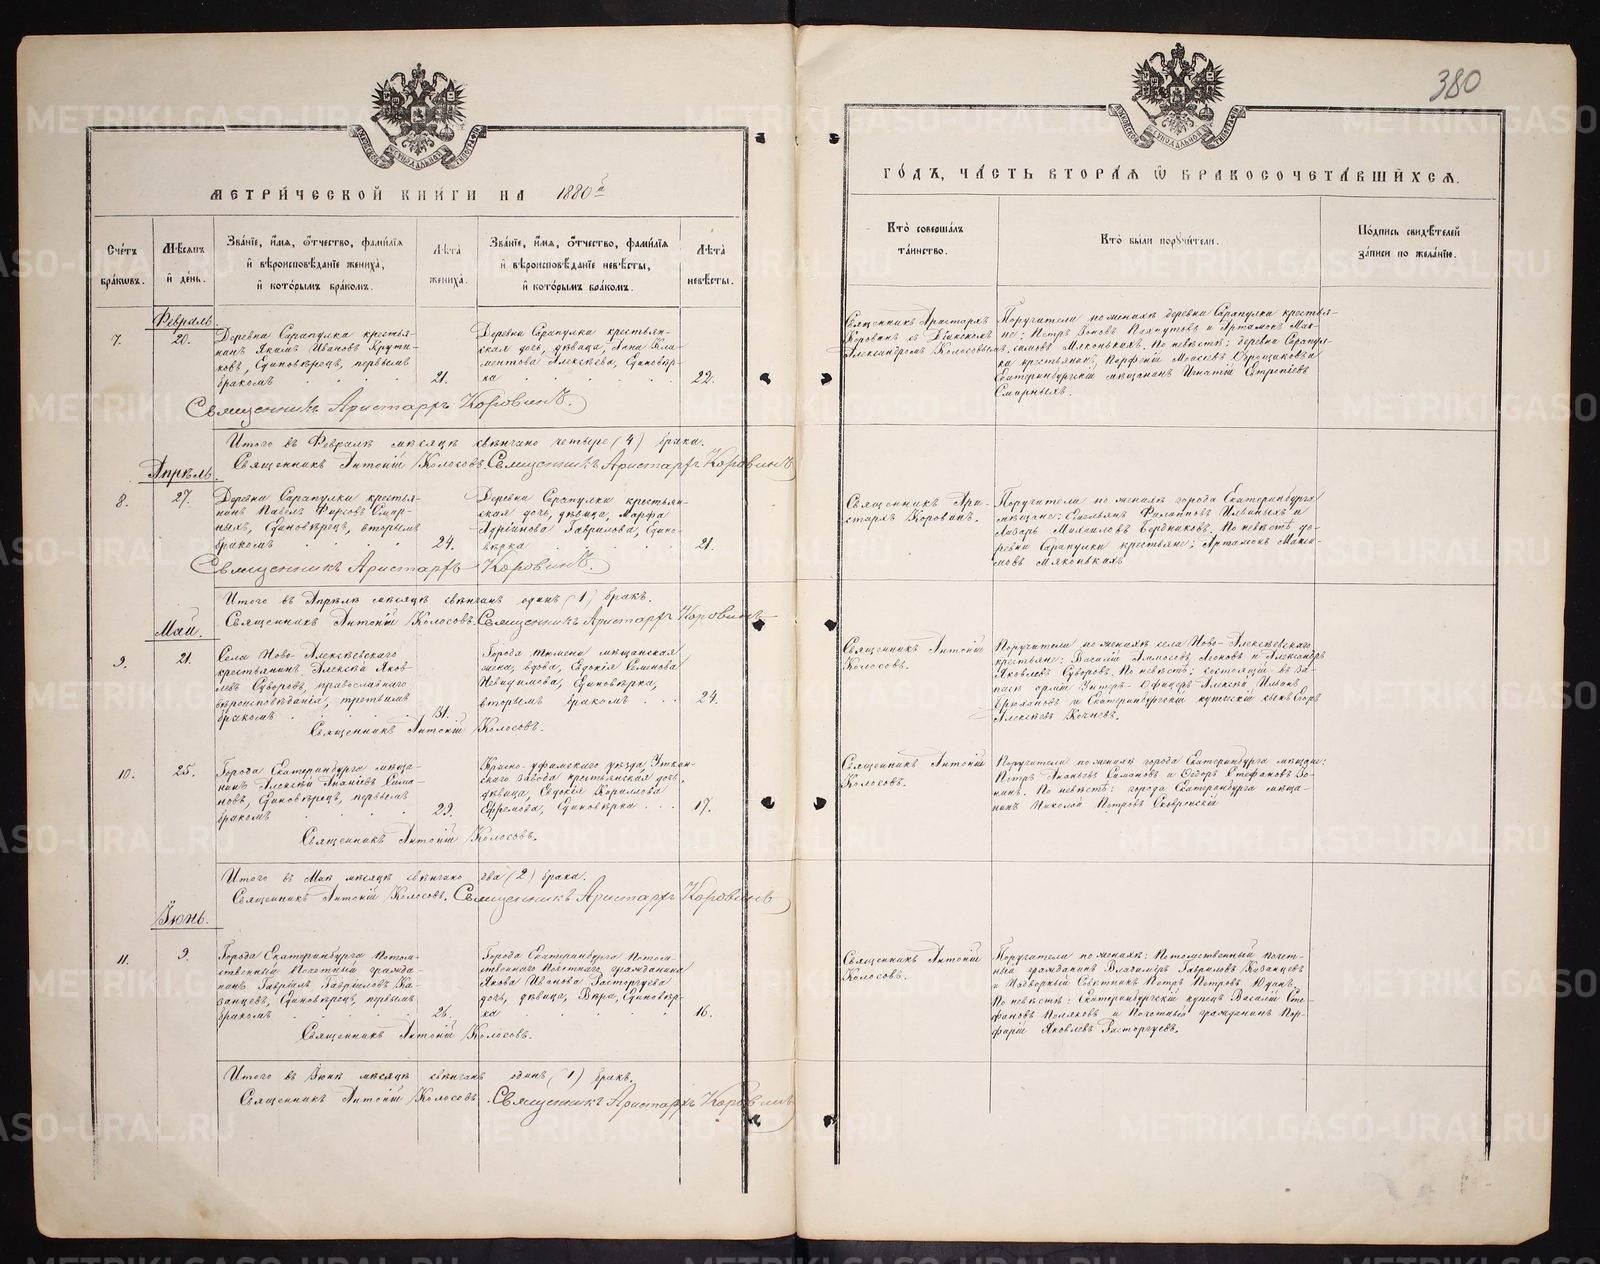 380
МЕТРИ́ЧЕСКОЙ КНИ́ГИ НА 1880й
ГО́ДЪ, ЧА́СТЬ ВТОРА́Я Ѡ БРАКОСОЧЕТА́ВШИХСЯ.
Сче́тъ бра́кѡвъ.
Мѣ́сяцъ и де́нь.
Зва́нїе, и́мя, ѻ҆́тчество, фами́лїя
и вѣроисповѣ́данїе жениха̀,
и кото́рымъ бра́комъ.
Лѣ́та жениха̀.
Зва́нїе, и́мя, ѻ҆́тчество, фами́лїя
и вѣроисповѣ́данїе невѣ́сты,
и кото́рымъ бра́комъ.
Лѣ́та невѣ́сты.
Кто̀ соверша́лъ
та́инство.
Кто̀ бы́ли порꙋчи́тели.
По́дпись свидѣ́телей
за́писи по жела́нїю.
Февраль.
7.
20.
Деревни Сарапулка крестья-
нинъ Якимъ Ивановъ Крути-
ковъ, Единовѣрецъ, первымъ
бракомъ
21.
Деревни Сарапулка крестьян-
ская дочь, дѣвица, Анна Кли-
ментова Алексѣева, Единовѣр-
ка
22.
Священникъ Аристархъ
Коровинъ съ Дьякономъ
Александромъ Колосовымъ
Поручители по женихѣ деревни Сарапулка крестья-
не: Петръ Пахнутовъ и Артамонъ Мак-
симовъ Мяконькихъ. По невѣстѣ: деревни Сарапул-
ка крестьянинъ, Порфирій Моисеевъ и
Екатеринбургскій мѣщанинъ Игнатій Евтропіевъ
Смирныхъ.
Священникъ Аристархъ Коровинъ.
Итого въ Февралѣ мѣсяцѣ вѣнчано четыре (4) брака.
Священникъ Антоній Колосовъ. Священникъ Аристархъ Коровинъ
Апрѣль.
8.
27.
Деревни Сарапулки крестья-
нинъ Павелъ Фирсовъ Смир-
ныхъ, Единовѣрецъ, вторымъ
бракомъ
24.
Деревни Сарапулки крестьян-
ская дочь, дѣвица, Марфа
Адріанова Гаврилова, Едино-
вѣрка
21.
Священникъ Ари-
стархъ Коровинъ.
Поручители по женихѣ города Екатеринбурга
мѣщане: Емельянъ Филипповъ Ильиныхъ и
Лазарь Михаиловъ Бердниковъ. По невѣстѣ де-
ревни Сарапулки крестьяне: Артамонъ Макси-
мовъ Мяконькихъ
Священникъ Аристархъ Коровинъ.
Итого въ Апрѣлѣ мѣсяцѣ вѣнчанъ одинъ (1) бракъ.
Священникъ Антоній Колосовъ. Священникъ Аристархъ Коровинъ
Май.
9.
21.
Села Ново-Алексѣевскаго
крестьянинъ Алексѣй Яков-
левъ Суворовъ, православнаго
вѣроисповѣданія, третьимъ
бракомъ
31.
Города Тюмени мѣщанская
жена, вдова, Евдокія Семенова
Невидимова, Единовѣрка,
вторымъ бракомъ
24.
Священникъ Антоній
Колосовъ.
Поручители по женихѣ села Ново-Алексѣевскаго
крестьяне: Василій Леоновъ и Александръ
Яковлевъ Суворовъ. По невѣстѣ: состоящій въ За-
пасѣ арміи Унтеръ-Офицеръ Алексѣй Ильинъ
Брюхановъ и Екатеринбургскій купескій сынъ Егоръ
Алексѣевъ Кочневъ.
Священникъ Антоній Колосовъ.
10.
25.
Города Екатеринбурга мѣща-
нинъ Алексѣй Ананіевъ Сима-
новъ, Единовѣрецъ, первымъ
бракомъ
23.
Красно-уфимскаго уѣзда, Уткин-
скаго завода крестьянская дочь,
дѣвица, Евдокія Кориллова
Ефремова, Единовѣрка
17.
Священникъ Антоній
Колосовъ.
Поручители по женихѣ города Екатеринбурга мѣщане:
Петръ Ананьевъ Симановъ и Ѳедоръ Стефановъ Зо-
нинъ. По невѣстѣ: города Екатеринбурга мѣща-
нинъ Николай Петровъ Сковронскій
Священникъ Антоній Колосовъ.
Итого въ Маѣ мѣсяцѣ вѣнчано два (2) брака.
Священникъ Антоній Колосовъ. Священникъ Аристархъ Коровинъ
Іюнь.
11.
9.
Города Екатеринбурга Потом-
ственный Почетный гражда-
нинъ Гавріилъ Гавріиловъ Ка-
занцевъ, Единовѣрецъ, первымъ
бракомъ
26.
Города Екатеринбурга Потом-
ственнаго Почетнаго гражданина
Якова Иванова Расторгуева
дочь, дѣвица, Вѣра, Единовѣр-
ка
16.
Священникъ Антоній
Колосовъ.
Поручители по женихѣ: Потомственный Почет-
ный гражданинъ Владиміръ Гавриловъ Казанцевъ
и Надворный Совѣтникъ Петръ Петровъ Юдинъ.
По невѣстѣ: Екатеринбургскій купецъ Василій Сте-
фановъ Поляковъ и Почетный гражданинъ Пор-
фирій Яковлевъ Расторгуевъ.
Священникъ Антоній Колосовъ.
Итого въ Іюнѣ мѣсяцѣ вѣнчанъ одинъ (1) бракъ.
Священникъ Антоній Колосовъ. Священникъ Аристархъ Коровинъ
METRIKI.GASO-URAL.RU